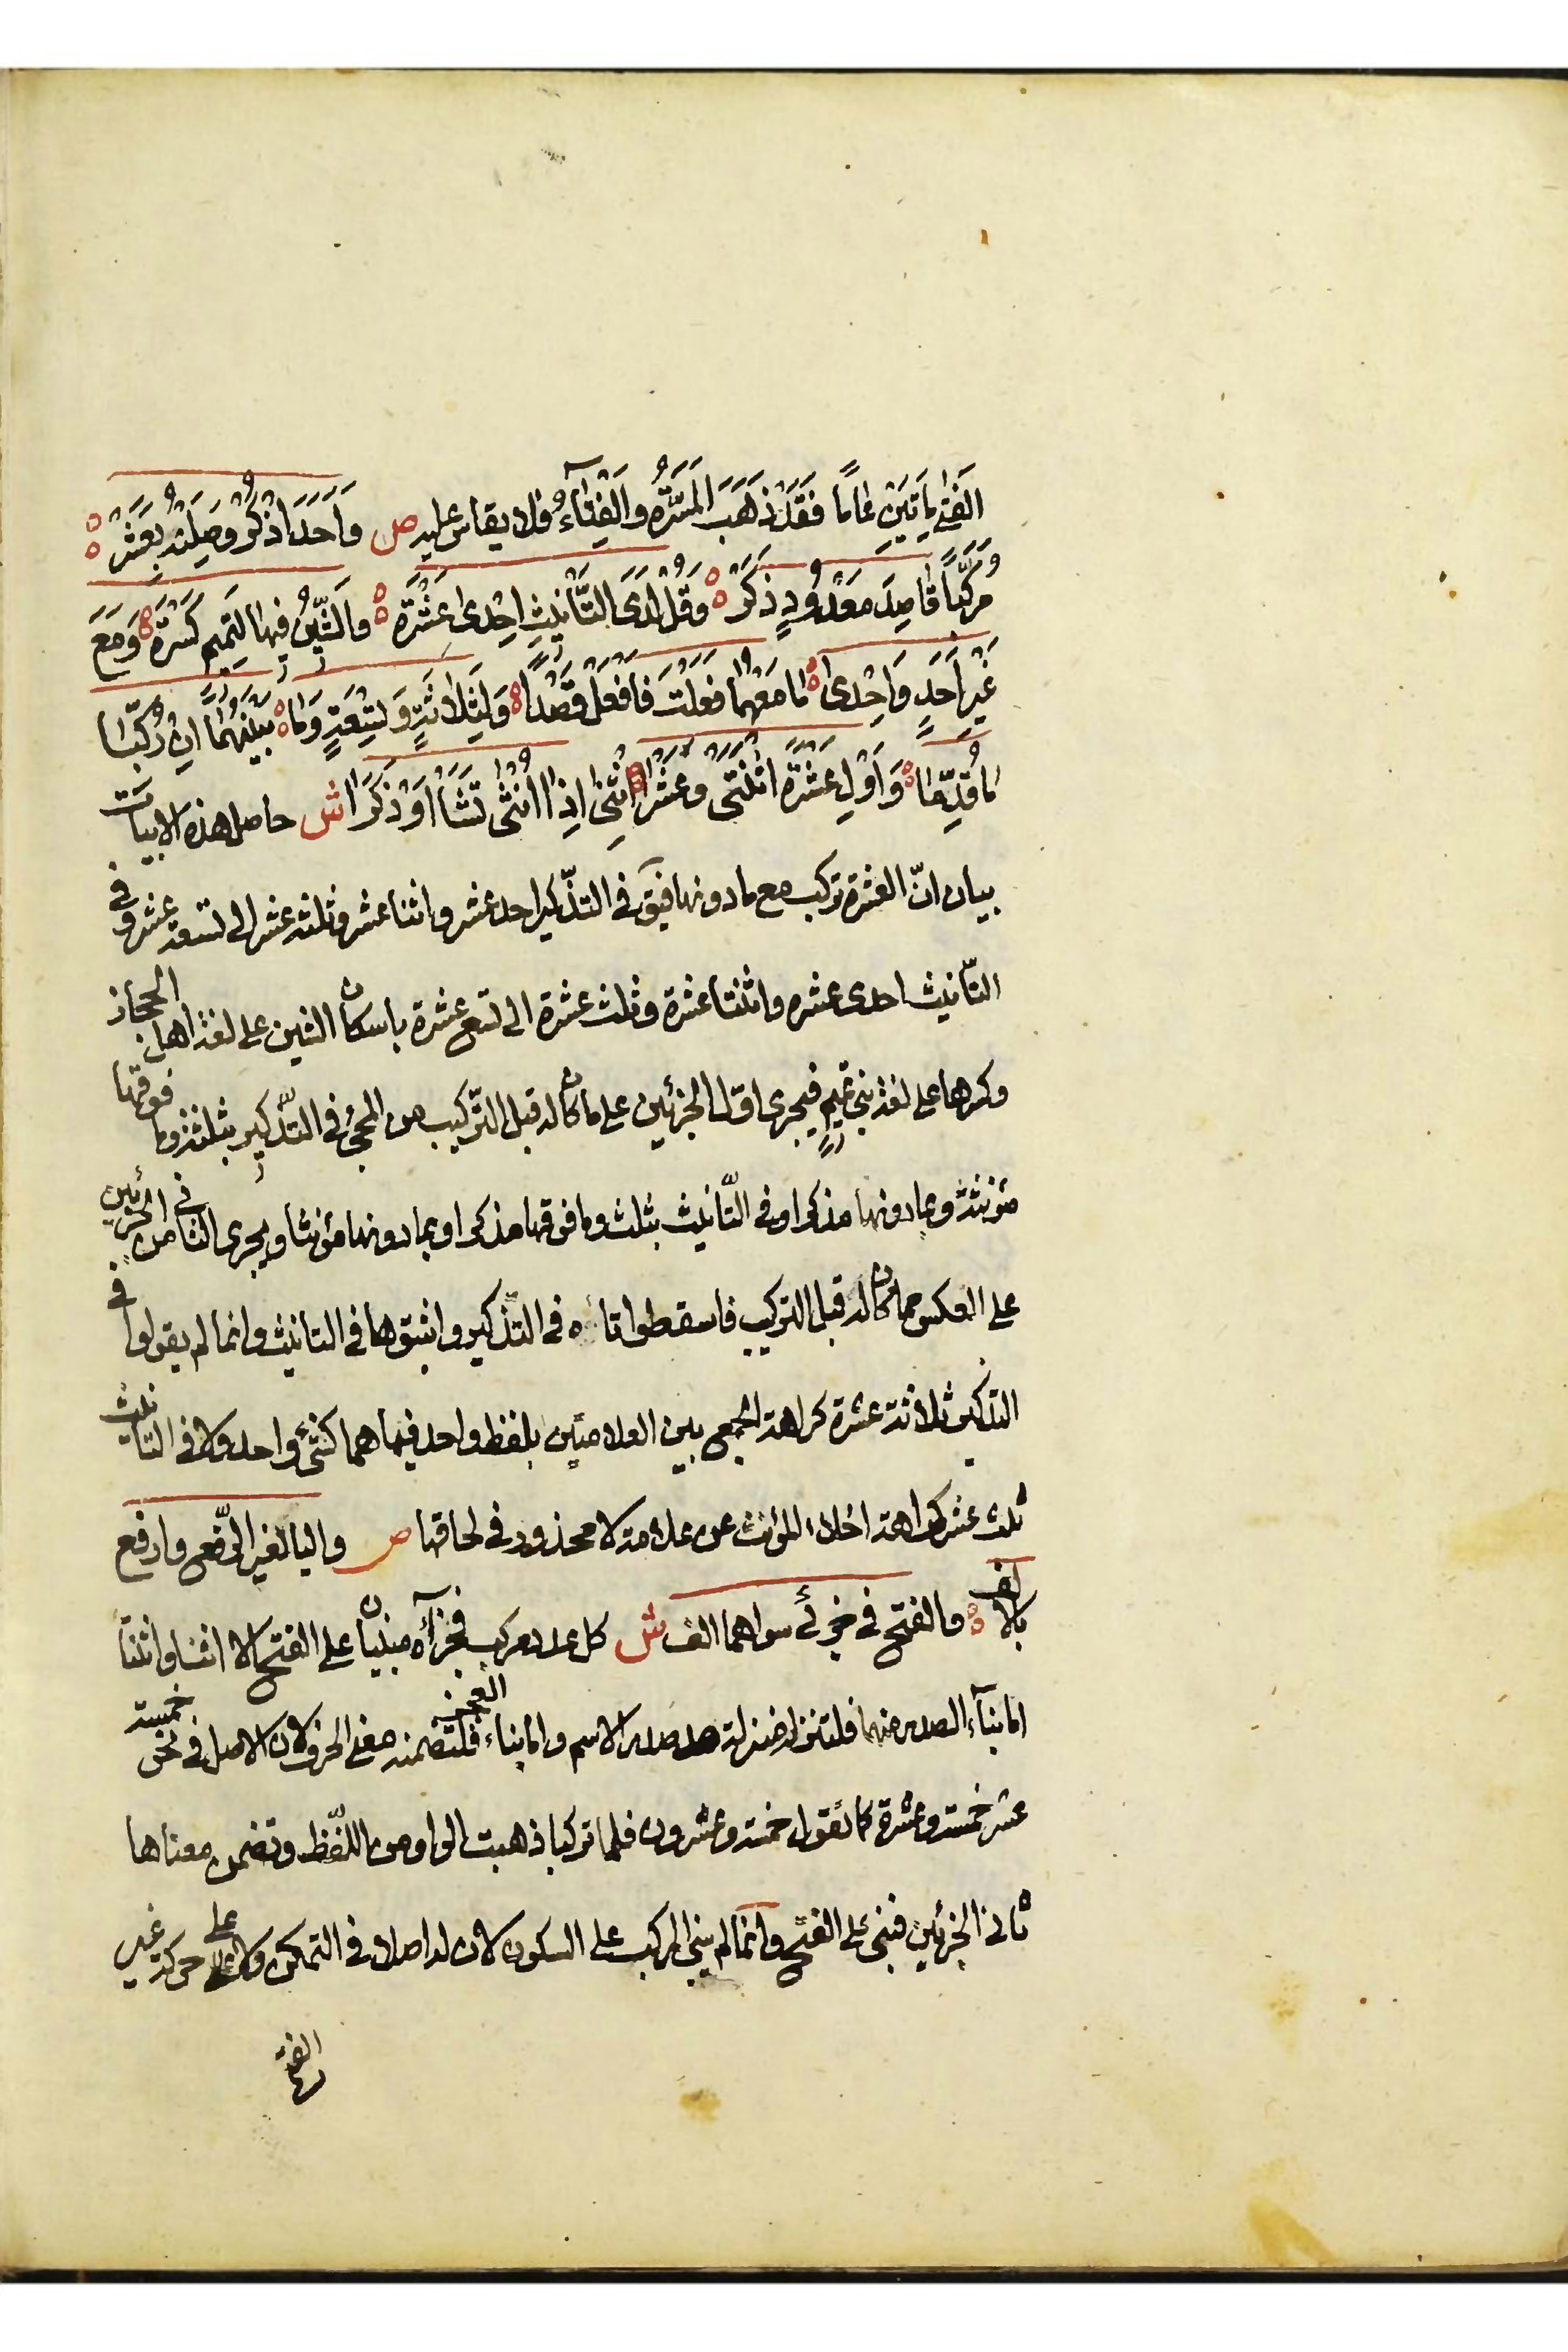 الفَتىٰ مِأتَيْنِ عٰامًا فَقَدْ ذَهَبَ المَسَرَّةُ وَالْفِتٰٓاءُ فلا يقاس عليه ص وَاَحَدَ اذْكُرْ وَصِلَنْهُ بِعَشَرْ
مُرَكِّبًا قٰاصِدَ مَعْدُودٍ ذَكَرْ وَقُلْ لَدَى التَّأنيثِ اِحْدىٰ عَشْرَةَ وَالشِّينُ فيها لتميم كَسْرَة وَمَع
غَيْرِ اَحَدٍ وَاِحْدىٰ مٰا مَعْهُمٰا فَعَلْتَ فَافْعَلْ قَصْدًا وَلِثَلاثَةٍ وَتِسْعَةٍ وَمٰا بَيْنَهُمٰا اِنْ رُكِّبٰا
مٰا قُدِّمٰا وَاَوْلِ عَشْرَةَ اثْنَتَىْ وَعَشَرا اثْنَىْ اِذٰا اُنْثىٰ تَشٰا اَوْ ذَكَرَا ش حاصل هذه الابيات
بيان انّ العشرة تركب مع مادونها فيق في التذّكير احد عشر واثنا عشر وثلثة عشر الى تسعة عشر وفي
التّأنيث احدى عشره واثنتا عشرة وثلث عشرة الى تسع عشرة باسكان الشين على لغة اهل الحجاز
وكسرها على لغة بني تميم فيجرى اوّل الجزئين على ما كان له قبل التّركيب من المجئ في التّذكير بثلثة وما فوقها
مؤنثة وبمادونها مذكرا وفي التّأنيث بثلث وما فوقها مذكرا وبمادونها مؤنثا ويجرى الثاني من الجزئين
على العكس مما كان له قبل التركيب فاسقطوا تاءه في التّذكير واثبتوها في التانيث وانما لم يقولوا في
التذكير ثلاثة عشرة كراهة الجمع بين العلامتين بلفظ واحد فيما هما كشئ واحد ولا في التانيث
ثلث عشر كراهة اخلاء المؤنث عن علامة لا محذور في لحاقها ص واليا لغير الرّفع وارفع
بالالف والفتح في جزئي سواهما الف ش كل عدد مركب فجزآه مبنيان على الفتح الا اثنا واثنتا
اما بنآء الصدر منهما فلتنزله منزلة صدر الاسم واما بناء العجز فلتضمنه معنى الحرف لان الاصل في نحو خمسة
عشر خمسة وعشرة كما تقول خمسة وعشرون فلما تركبا ذهبت الواو من اللّفظ وتضمن معناها
ثاني الجزئين فبني على الفتح وانما لم يبنى المركب على السكون لان له اصلا في التمكن ولا على حركة غير
الفتح